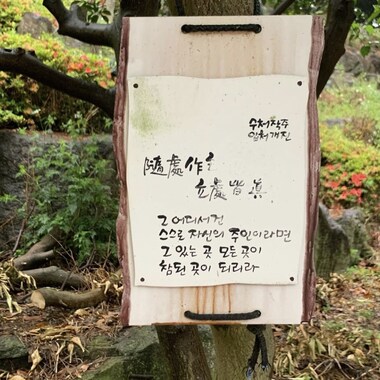 수처작주
입처개진
隨處作主
立處皆眞
그 어디서건
스스로 자신의 주인이라면
그 있는 곳 모든 곳이
참된 곳이 되리라